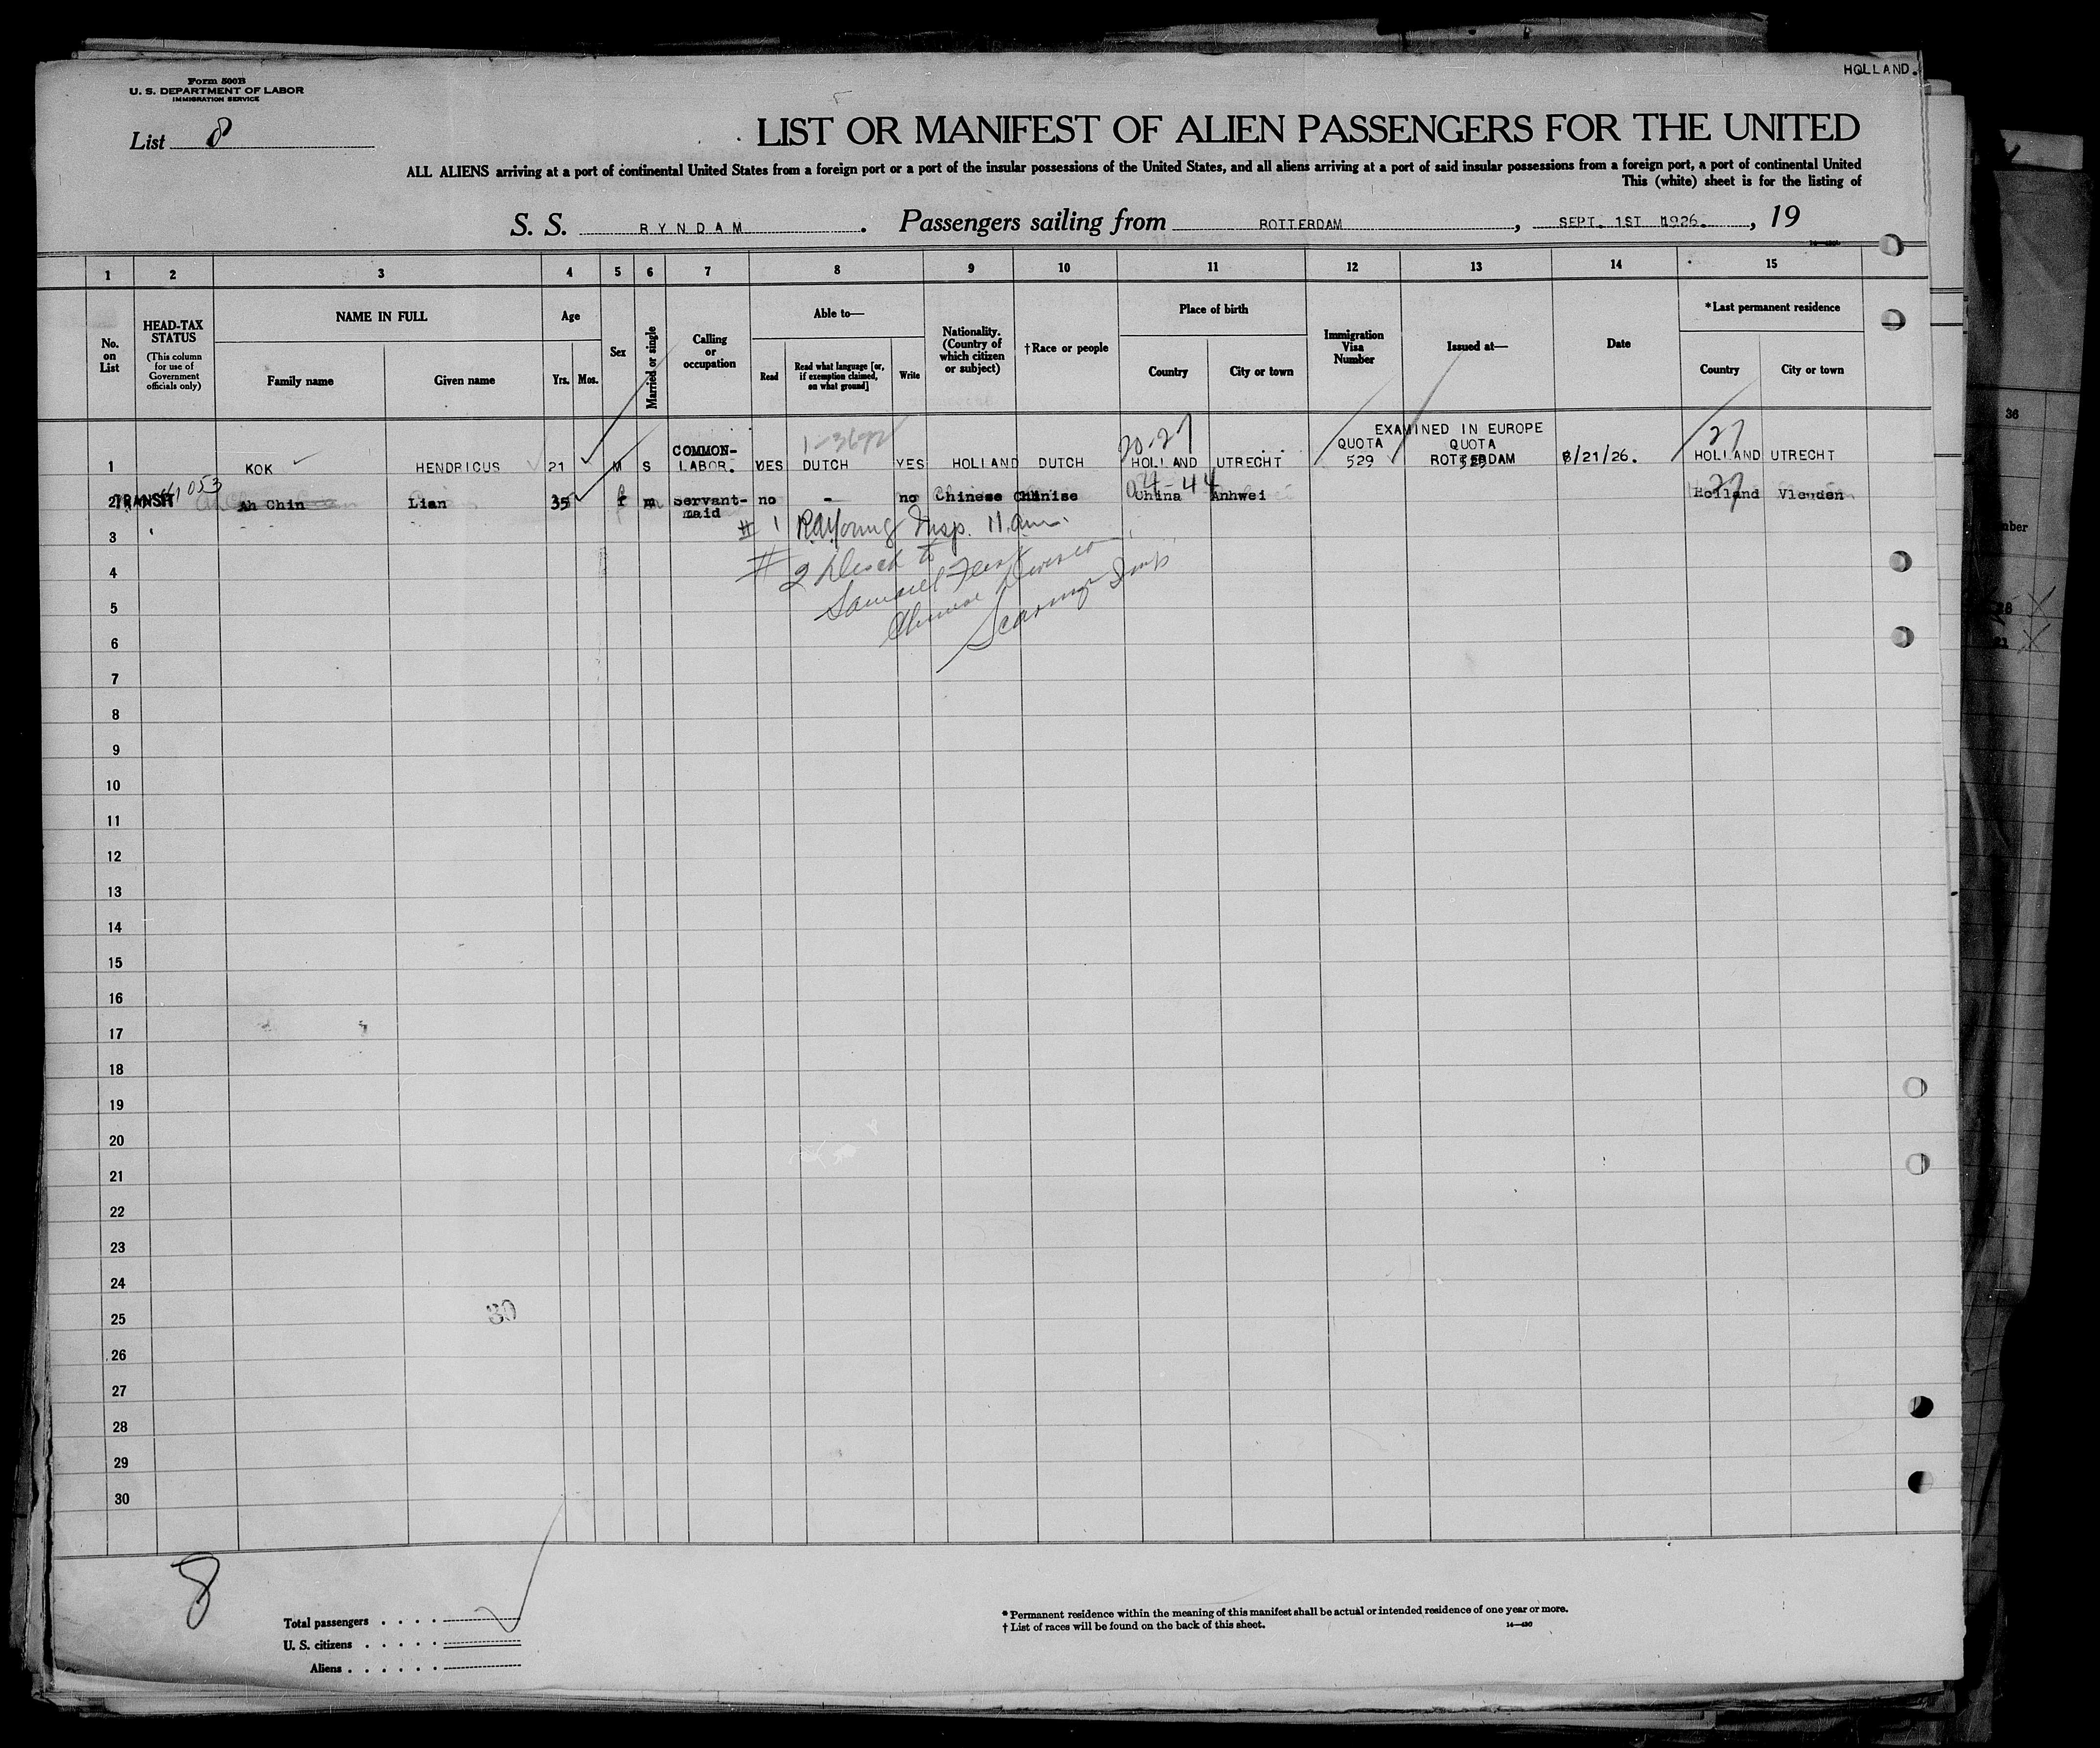 HOLLAND.
Form 500B
U. S. DEPARTMENT OF LABOR
IMMIGRATION SERVICE
List 8
LIST OR MANIFEST OF ALIEN PASSENGERS FOR THE UNITED
ALL ALIENS arriving at a port of continental United States from a foreign port or a port of the insular possessions of the United States, and all aliens arriving at a port of said insular possessions from a foreign port, a port of continental United
This (white) sheet is for the listing of
S. S. RYNDAM. Passengers sailing from ROTTERDAM, SEPT. 1ST 1926., 19
1 2 3 4 5 6 7 8 9 10 11 12 13 14 15
No. on List
HEAD-TAX STATUS
(This column for use of Government officials only)
NAME IN FULL
Family name Given name
Age
Yrs. Mos.
Sex
Married or single
Calling or occupation
Able to—
Read
Read what language [or, if exemption claimed, on what ground]
Write
Nationality. (Country of which citizen or subject)
†Race or people
Place of birth
Country City or town
Immigration Visa Number
Issued at—
Date
*Last permanent residence
Country City or town
20-27 EXAMINED IN EUROPE 27
COMMON- QUOTA QUOTA
1 KOK HENDRICUS 21 M S LABOR. YES DUTCH YES HOLLAND DUTCH HOLLAND UTRECHT 529 ROTTERDAM 8/21/26. HOLLAND UTRECHT
053 44 27
2 TRANSIT Ah Chin Lian 35 f m servant- no - no Chinese Chinise China Anhwei Holland Vleuden
maid
# 1 Insp. 11 am.
3
# 2 to
4
Samuel
5
Chinese
6
Insp
7
8
9
10
11
12
13
14
15
16
17
18
19
20
21
22
23
24
30
25
26
27
28
29
30
8
Total passengers . . . .
U. S. citizens . . . . .
Aliens . . . . . .
* Permanent residence within the meaning of this manifest shall be actual or intended residence of one year or more.
† List of races will be found on the back of this sheet.
36